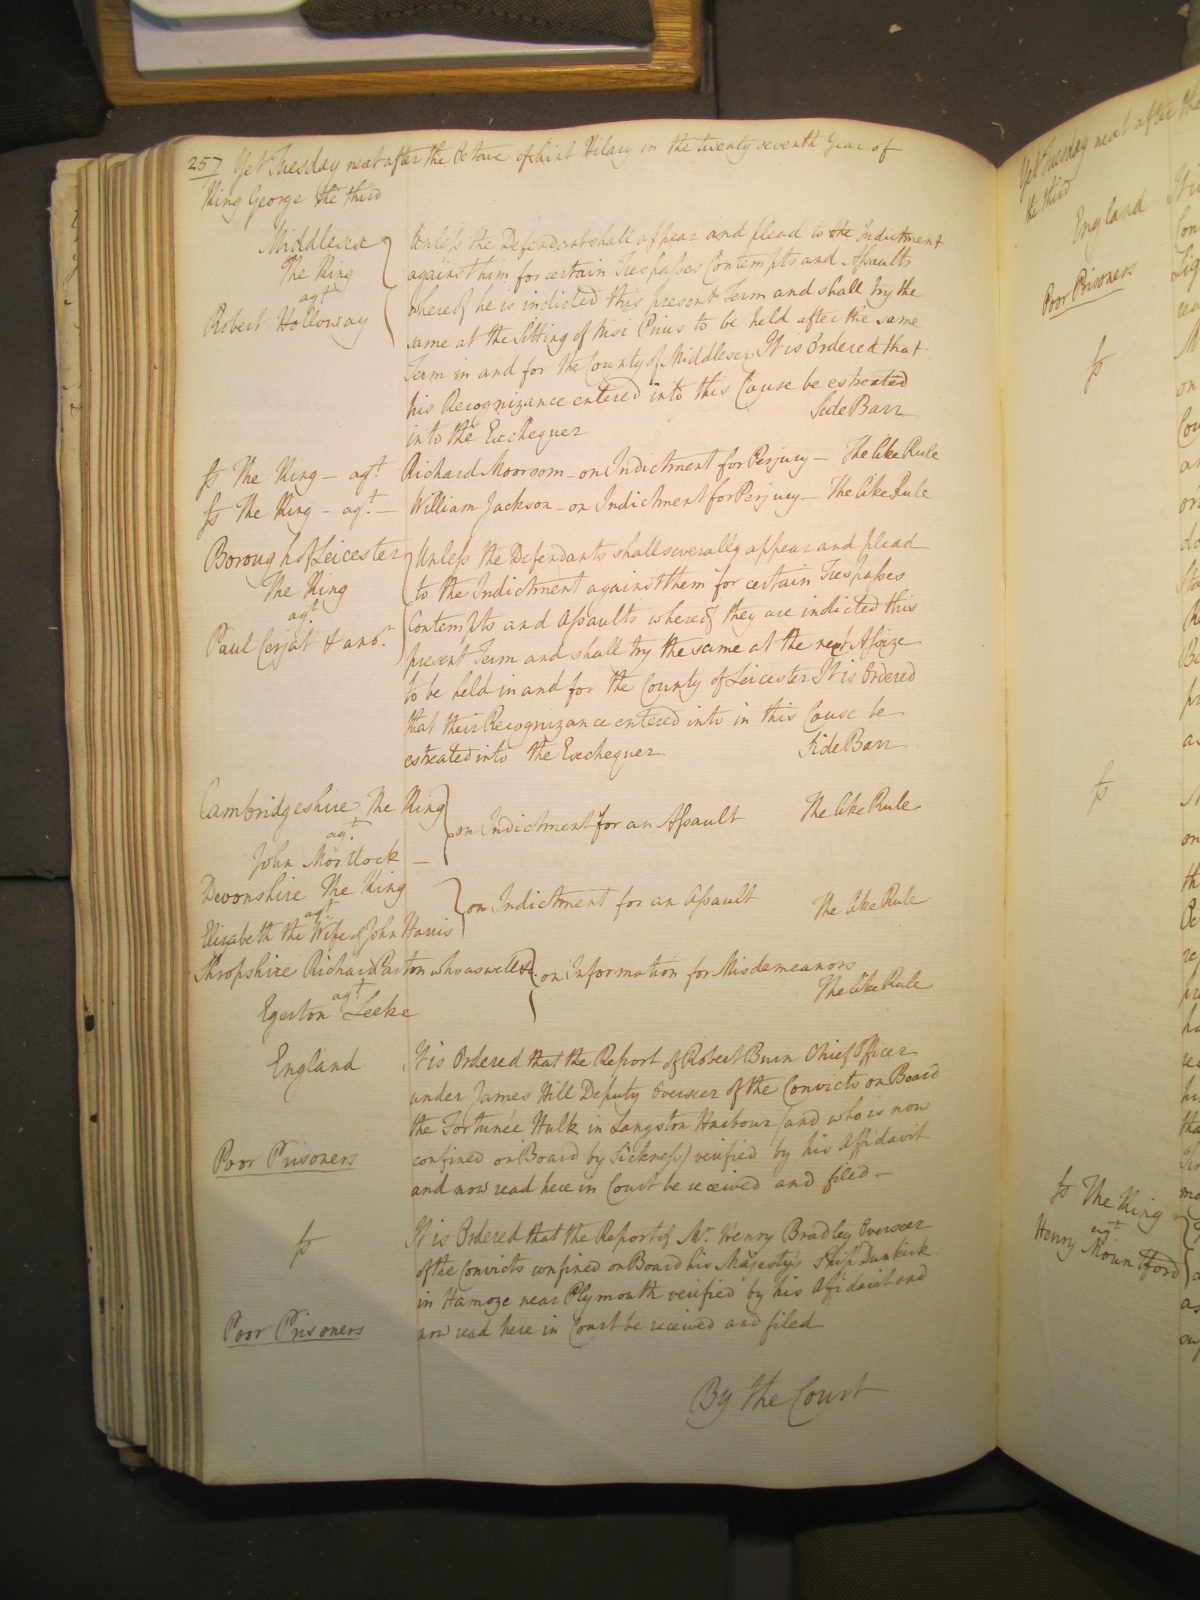 257 Yet Tuesday next after the Octave of Saint Hilary in the twenty seventh Year of
King George the third
Middlesex
The King
agt
Robert Holloway
Unless the Defendant shall appear and plead to the Indictment
against him for certain Trespasses Contempts and Assaults
whereof he is indicted this present Term and shall try the
same at the Sitting of Nisi Prius to be held after the same
Term in and for the County of Middlesex It is Ordered that
his Recognizance entered into this Cause be estreated
into the Exchequer
Side Barr
fs The King - agt. Richard Moorsom - on Indictment for Perjury - The like Rule
fs The King - agt. - William Jackson - on Indictment for Perjury - The like Rule
Borough of Leicester
The King
agt.
Paul Cerjat & anor.
Unless the Defendants shall severally appear and plead
to the Indictment against them for certain Trespasses
Contempts and Assaults whereof they are indicted this
present Term and shall try the same at the next Assize
to be held in and for the County of Leicester It is Ordered
that their Recognizance entered into in this Cause be
estreated into the Exchequer Side Barr
Cambridgeshire The King
agt.
John Mortlock -
on Indictment for an Assault The like Rule
Devonshire The King
agt.
Elizabeth the Wife of John Harris
on Indictment for an Assault The like Rule
Shropshire Richard Parton who as well &c. on Information for Misdemeanors
agt.
Egerton Leeke
The like Rule
England
Poor Prisoners
It is Ordered that the Report of Robert Burn Chief Officer
under James Hill Deputy Overseer of the Convicts on Board
the Fortunée Hulk in Langston Harbour (and who is now
confined on Board by Sickness) verified by his Affidavit
and now read here in Court be received and filed -
fs
Poor Prisoners
It is Ordered that the Report of Mr. Henry Bradley Overseer
of the Convicts confined on Board his Majestys Ship Dunkirk
in Hamoze near Plymouth verified by his Affidavit and
now read here in Court be received and filed
By the Court
Yet Tuesday next after the
the third
England
Poor Prisoners
fs
fs
fs The King
agt
Henry Mountford